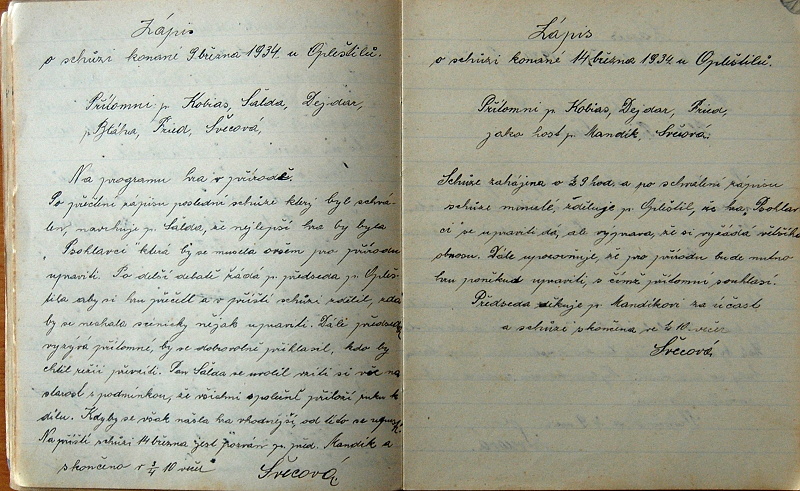 Zápis
o schůzi konané 9 března 1934 u Opleštilů.
Přítomni p. Kobias, Salda, Dejdar,
p. Bláha, Fried, Švecová,
Na programu hra v přírodě.
Po přečtení zápisu poslední schůze který byl schvá-
len, navrhuje p. Salda, že nejlepší hra by byla
"Psohlavci" která by se musela ovšem pro přírodu
upraviti. Po delší debatě žádá p. předseda p. Opleš-
tila aby si hru přečetl a v příští schůzi sdělil, zda
by se nechala scénicky nějak upraviti. Dále předseda
vyzývá přítomné, by se dobrovolně přihlásil, kdo by
chtěl režii převzíti. Pan Salda se uvolil vzíti si věc na
starost s podmínkou, že všichni společně přiloží ruku k
dílu. Kdyby se však našla hra vhodnější, od této se upustí.
Na příští schůzi 14 března jest pozván p. Mandík a
skončeno v 3/4 10 večer
Švecová
Zápis
o schůzi konané 14 března 1934 u Opleštilů.
Přítomni p. Kobias, Dejdar, Fried,
jako host p. Mandík, Švecová.
Schůze zahájena o 9 hod. a po schválení zápisu
schůze minulé, sděluje p. Opleštil, že hra Psohlav-
ci se upraviti dá, ale výprava, že si vyžádá většího
obnosu. Dále upozorňuje, že pro přírodu bude nutno
hru poněkud upraviti, s čímž přítomní souhlasí.
Předseda děkuje p. Mandíkovi za účast
a schůze skončena ve 10 večer
Švecová